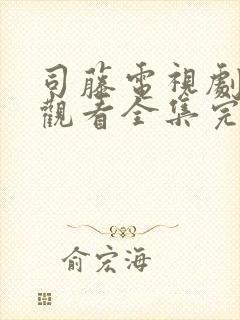 司藤電視劇
觀看全集完
俞宏海